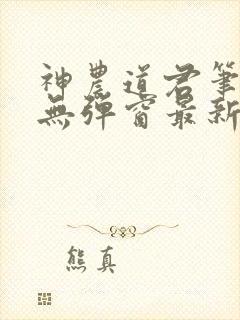 神農道君筆
無彈窗最新
熊真